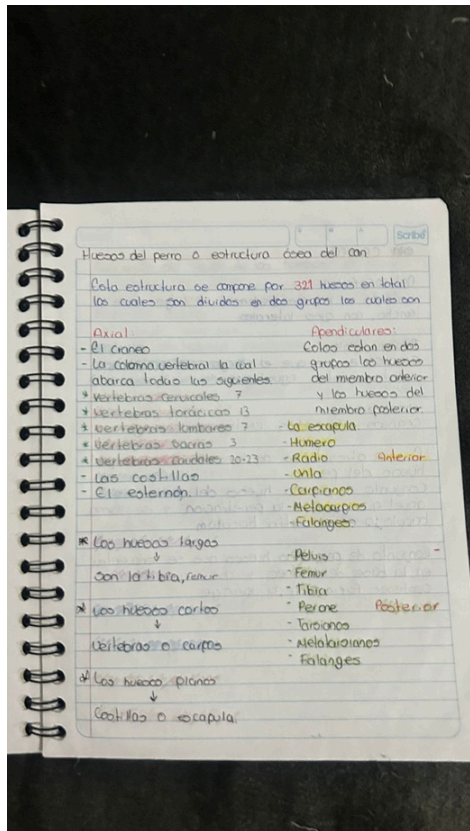 Scribe
Huesos del perro o estructura ósea del can
Esta estructura se compone por 321 huesos en total
los cuales son dividos en dos grupos los cuales son
Axial
- El craneo
- La colomna vertebral la cual
abarca todas las siguientes
* vertebras cervicales 7
* vertebras torácicas 13
* vertebras lombares 7
* vertebras sacras 3
* vertebras caudales 20-23
- Las costillas
- El esternon.
* Los huesos largos
↓
son la tibia, femur
* Los huesos cortos
↓
Vertebras o carpos
* Los huesos planos
↓
Costillas o escapula.
Apendiculares:
Estos estan en dos
grupos los huesos
del miembro anterior
y los huesos del
miembro posterior.
- La escapula
- Humero
- Radio Anterior
- Unla
- Carpianos
- Metacarpios
- Falanges
- Pelvis
- Femur
- Tibia
- Perone Posterior
- Tarsianos
- Metatarsianos
- Falanges